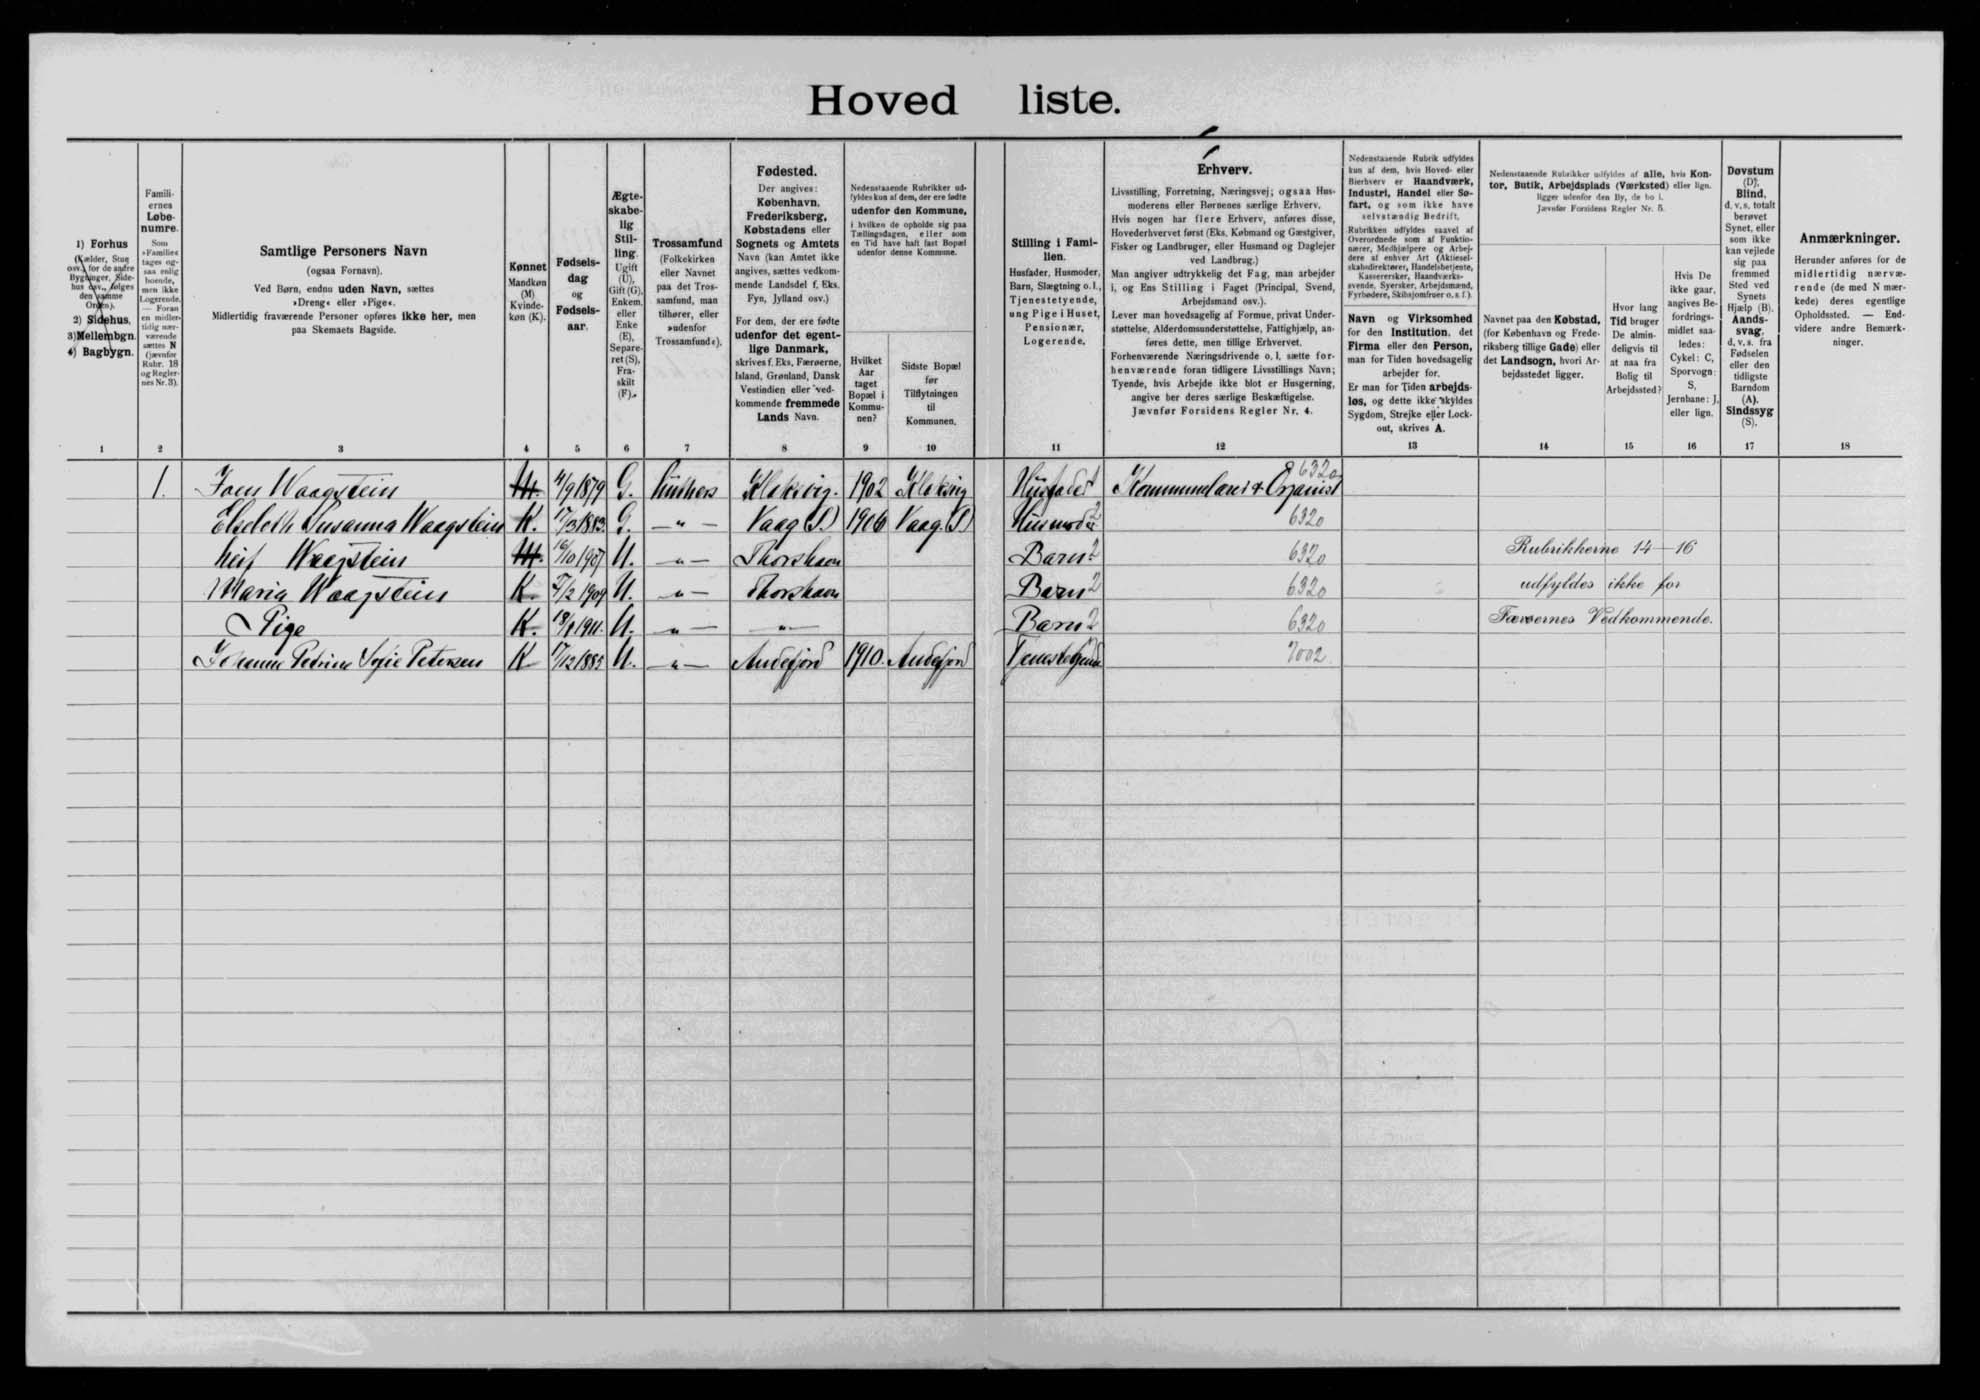 Hoved liste.
1) Forhus
(Kælder, Stue
osv.), for de andre
Bygninger, Side-
hus osv., følges
den samme
Orden).
2) Sidehus,
3) Mellembgn.
4) Bagbygn.
Famili-
ernes
Løbe-
numre.
Som
»Familie«
tages og-
saa enlig
boende,
men ikke
Logerende.
— Foran
en midler-
tidig nær-
værende
sættes N
(jævnfør
Rubr. 18
og Regler-
nes Nr. 3).
Samtlige Personers Navn
(ogsaa Fornavn).
Ved Børn, endnu uden Navn, sættes
»Dreng« eller »Pige«.
Midlertidig fraværende Personer opføres ikke her, men
paa Skemaets Bagside.
Kønnet
Mandkøn
(M)
Kvinde-
køn (K).
Fødsels-
dag
og
Fødsels-
aar.
Ægte-
skabe-
lig
Stil-
ling.
Ugift
(U),
Gift (G),
Enkem.
eller
Enke
(E),
Separe-
ret (S),
Fra-
skilt
(F).
Trossamfund
(Folkekirken
eller Navnet
paa det Tros-
samfund, man
tilhører, eller
»udenfor
Trossamfund«).
Fødested.
Der angives:
København,
Frederiksberg,
Købstadens eller
Sognets og Amtets
Navn (kan Amtet ikke
angives, sættes vedkom-
mende Landsdel f. Eks.
Fyn, Jylland osv.)
For dem, der ere fødte
udenfor det egent-
lige Danmark,
skrives f. Eks. Færøerne,
Island, Grønland, Dansk
Vestindien eller ved-
kommende fremmede
Lands Navn.
Nedenstaaende Rubrikker ud-
fyldes kun af dem, der ere fødte
udenfor den Kommune,
i hvilken de opholde sig paa
Tællingsdagen, eller som
en Tid have haft fast Bopæl
udenfor denne Kommune.
Hvilket
Aar
taget
Bopæl i
Kommu-
nen?
Sidste Bopæl
før
Tilflytningen
til
Kommunen.
Stilling i Fami-
lien.
Husfader, Husmoder,
Barn, Slægtning o.l.,
Tjenestetyende,
ung Pige i Huset,
Pensionær,
Logerende.
Erhverv.
Livsstilling, Forretning, Næringsvej; ogsaa Hus-
moderens eller Børnenes særlige Erhverv.
Hvis nogen har flere Erhverv, anføres disse,
Hovederhvervet først (Eks. Købmand og Gæstgiver,
Fisker og Landbruger, eller Husmand og Daglejer
ved Landbrug.)
Man angiver udtrykkelig det Fag, man arbejder
i, og Ens Stilling i Faget (Principal, Svend,
Arbejdsmand osv.).
Lever man hovedsagelig af Formue, privat Under-
støttelse, Alderdomsunderstøttelse, Fattighjælp, an-
føres dette, men tillige Erhvervet.
Forhenværende Næringsdrivende o. l. sætte for-
henværende foran tidligere Livsstillings Navn;
Tyende, hvis Arbejde ikke blot er Husgerning,
angive her deres særlige Beskæftigelse.
Jævnfør Forsidens Regler Nr. 4.
Nedenstaaende Rubrik udfyldes
kun af dem, hvis Hoved- eller
Bierhverv er Haandværk,
Industri, Handel eller Sø-
fart, og som ikke have
selvstændig Bedrift.
Rubrikken udfyldes saavel af
Overordnede som af Funktio-
nærer, Medhjælpere og Arbej-
dere af enhver Art (Aktiesel-
skabsdirektører, Handelsbetjente,
Kassererske, Haandværks-
svende, Syersker, Arbejdsmænd,
Fyrbødere, Skibsjomfruer o. s. f.).
Navn og Virksomhed
for den Institution, det
Firma eller den Person,
man for Tiden hovedsagelig
arbejder for.
Er man for Tiden arbejds-
løs, og dette ikke skyldes
Sygdom, Strejke eller Lock-
out, skrives A.
Nedenstaaende Rubrikker udfyldes af alle, hvis Kon-
tor, Butik, Arbejdsplads (Værksted) eller lign.
ligger udenfor den By, de bo i.
Jævnfør Forsidens Regler Nr. 5.
Navnet paa den Købstad,
(for København og Frede-
riksberg tillige Gade) eller
det Landsogn, hvori Ar-
bejdsstedet ligger.
Hvor lang
Tid bruger
De almin-
deligvis til
at naa fra
Bolig til
Arbejdssted?
Hvis De
ikke gaar,
angives Be-
fordrings-
midlet saa-
ledes:
Cykel: C,
Sporvogn:
S,
Jernbane: J,
eller lign.
Døvstum
(D),
Blind,
d. v. s. totalt
berøvet
Synet, eller
som ikke
kan vejlede
sig paa
fremmed
Sted ved
Synets
Hjælp (B).
Aands-
svag,
d. v. s. fra
Fødselen
eller den
tidligste
Barndom
(A).
Sindssyg
(S).
Anmærkninger.
Herunder anføres for de
midlertidig nærvæ-
rende (de med N mær-
kede) deres egentlige
Opholdssted. — End-
videre andre Bemærk-
ninger.
1 2 3 4 5 6 7 8 9 10 11 12 13 14 15 16 17 18
1. Joen Waagstein M. 4/9 1879 G. Luthers Klaksvig. 1902 Klaksvig Husfader Kommunelærer & Organist 6320
Elsebeth Susanna Waagstein K. 17/3 1883. G. — " — Vaag (S.) 1906 Vaag. (S) Husmoder 2 6320
Leif Waagstein M. 16/10 1907 U. — " — Thorshavn Barn 2 6320 Rubrikkerne 14 — 16
Maria Waagstein K. 7/2 1909 U. — " — Thorshavn Barn 2 6320 udfyldes ikke for
Pige K. 18/1 1911. U. — " — — " — Barn 2 6320 Færøernes Vedkommende.
Johanne Petrine Sofie Petersen K 17/12 1885 U. — " — Andefjord 1910. Andefjord Tjenestetyende 7002.